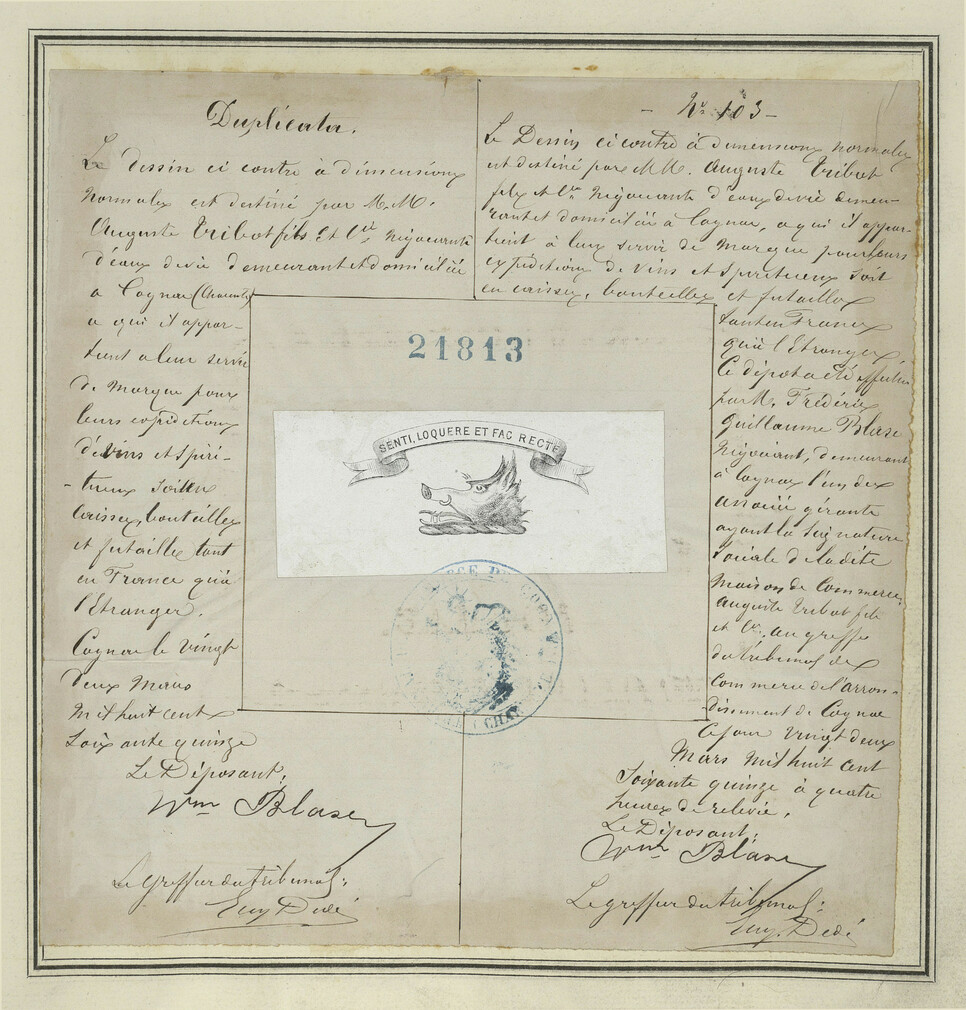 Duplicata.
Le dessin ci contre à dimensions
Normales est destiné par M.M.
Auguste Tribot fils et Cie, Négociants
d'eaux de vie demeurant et domiciliés
à Cognac (Charente)
a qui il appar-
tient a leur servir
de Marque pour
leurs expéditions
de vins et Spiri-
-tueux soit en
Caisses, bouteilles
et futailles tant
en France qu'à
l'Etranger.
Cognac le vingt
deux Mars
Mil huit cent
Soixante quinze
Le Déposant,
Wm Blase
Le Greffier du tribunal:
Eug. Dedé
- No 103 -
Le Dessin ci contre à dimensions normales
est destiné par MM. Auguste Tribot
fils et Cie Négociants d'eaux de vie demeu-
rant et domiciliés à Cognac, a qui il appar-
tient à leur servir de Marque pour leurs
expéditions de vins et Spiritueux soit
en caisses, bouteilles et futailles
tant en France
qu'à l'Etranger.
Ce dépot a été effectué
par M. Frédéric
Guillaume Blase
Négociant, demeurant
à Cognac l'un des
associés gérants
ayant la Signature
Sociale de ladite
Maison de Commerce
Auguste Tribot fils
et Cie, au greffe
du tribunal de
Commerce de l'arron-
dissement de Cognac
Ce jour vingt deux
Mars Mil huit cent
Soixante quinze à quatre
heures de relevée.
Le Déposant:
Wm Blase
Le greffier du tribunal:
Eug. Dedé
21813
SENTI, LOQUERE ET FAC RECTE